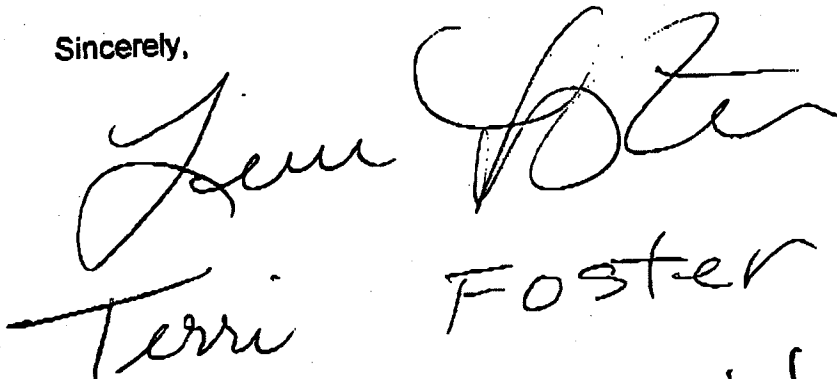 Sincerely,
Terri Foster
Terri Foster